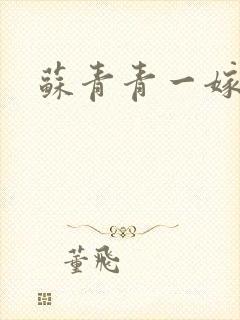 蘇青青一嫁
董飛